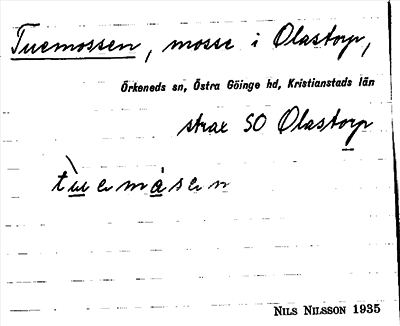 Tuemossen, mosse i Olastorp,
Örkeneds sn, Östra Göinge hd, Kristianstads län
strax SO Olastorp
tùuemåsen
NILS NILSSON 1935